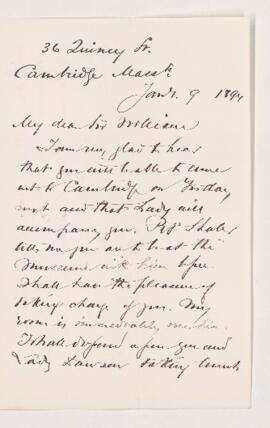 36 Quincy St.
Cambridge Mass.
Jan. 9 1894
My dear Sir William
I am very glad to hear
that you will be able to come
out to Cambridge on Friday
next and that Lady will
accompany you. Prof Shaler
tells me you are to be at the
Museum with him before
I shall have the pleasure of
taking charge of you. My
room is immediately
I shall depend upon you and
Lady Dawson taking lunch